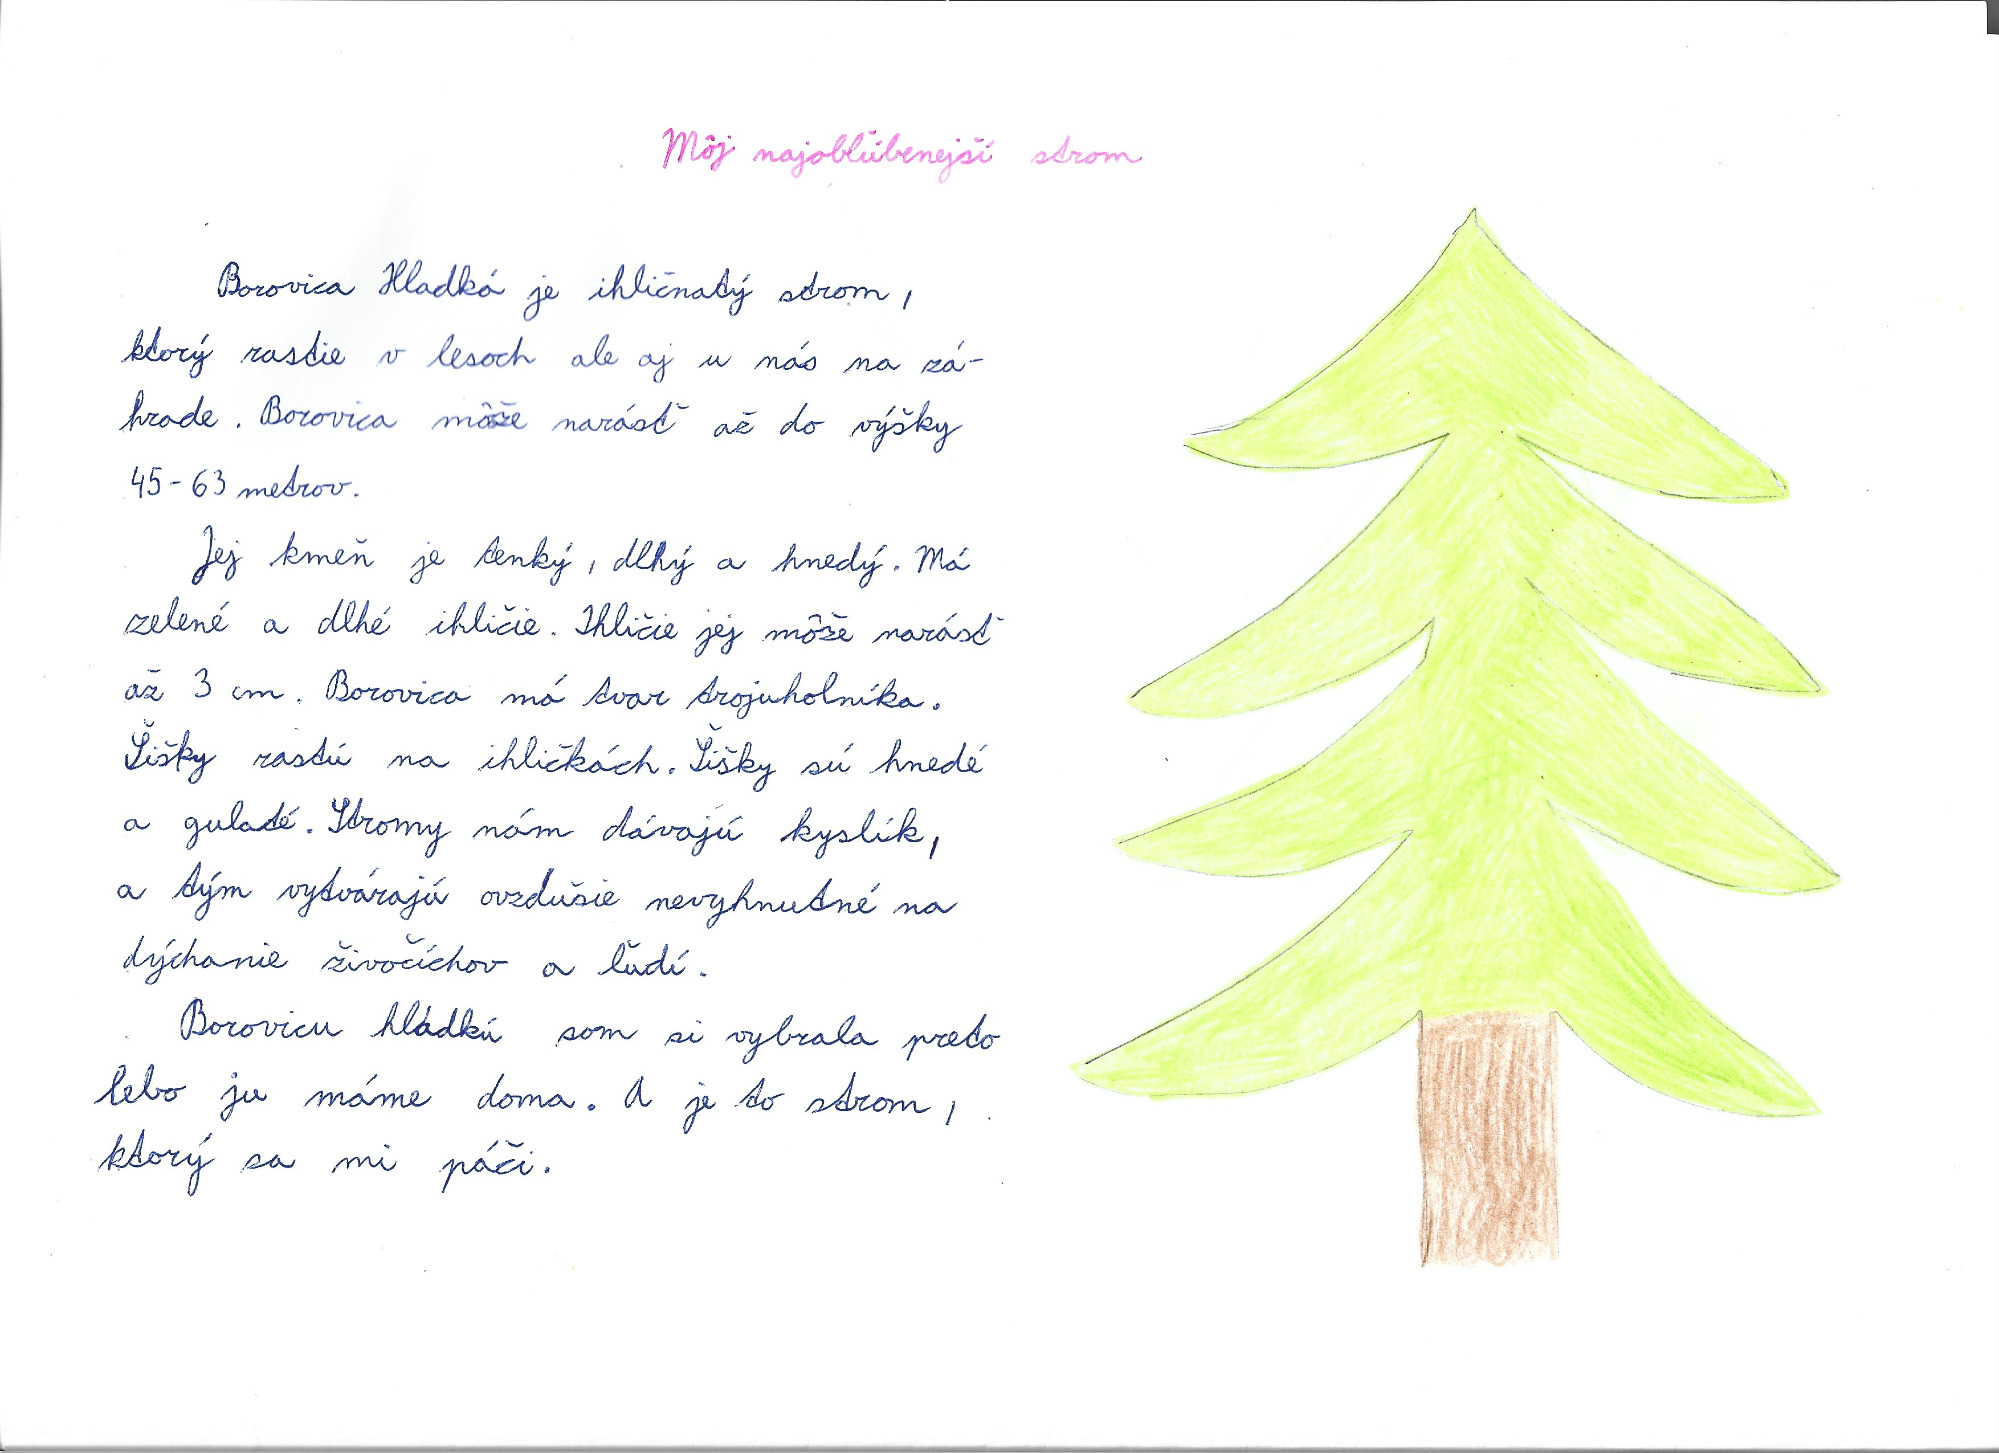 Môj najobľúbenejší strom
Borovica Hladká je ihličnatý strom,
ktorý rastie v lesoch ale aj u nás na zá-
hrade. Borovica môže narásť až do výšky
45-63 metrov.
Jej kmeň je tenký, dlhý a hnedý. Má
zelené a dlhé ihličie. Ihličie jej môže narásť
až 3 cm. Borovica má tvar trojuholníka.
Šišky rastú na ihličkách. Šišky sú hnedé
a gulaté. Stromy nám dávajú kyslík,
a tým vytvárajú ovzdušie nevyhnutné na
dýchanie živočíchov a ľudí.
Borovicu hládkú som si vybrala preto
lebo ju máme doma. A je to strom,
ktorý sa mi páči.